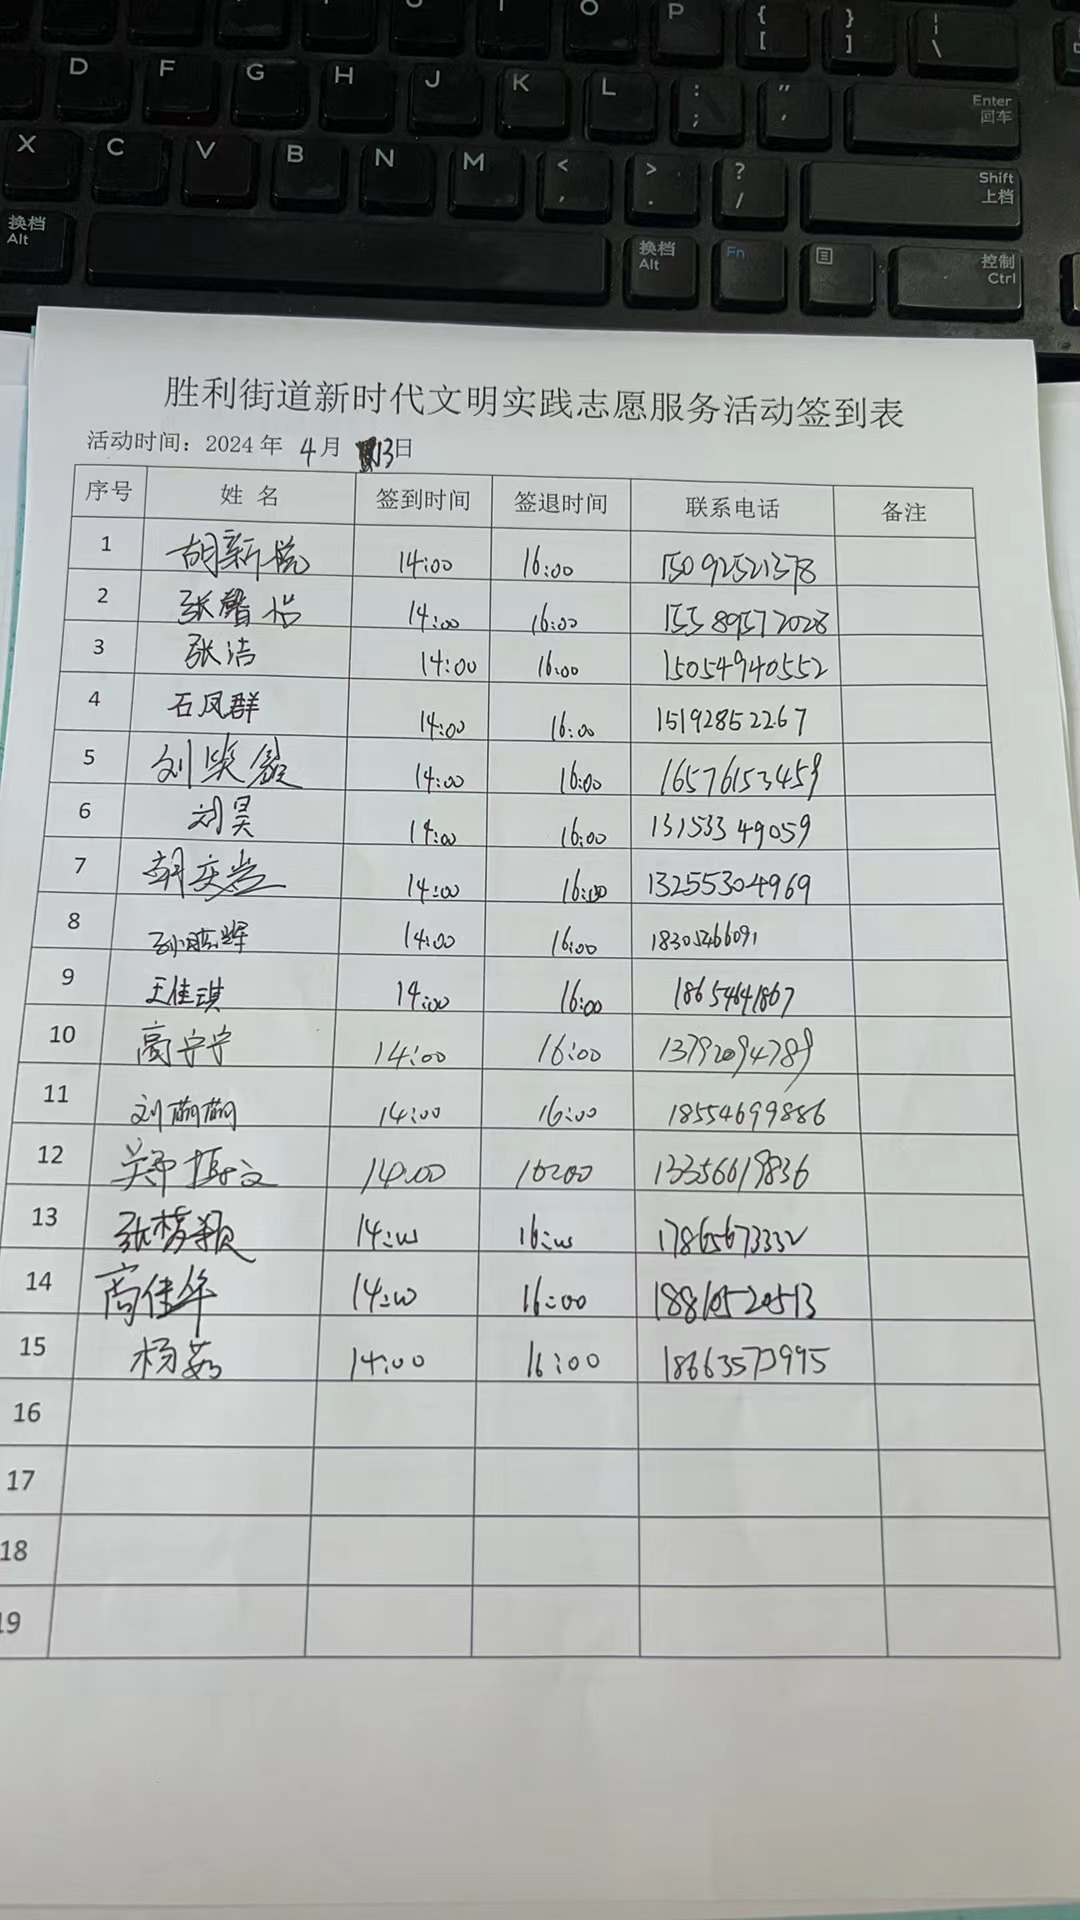 O P { [ } ] | \
D F G H J K L : ; " ' Enter 回车
X C V B N M < , > . ? / Shift 上档
换档 Alt 换档 Alt Fn 控制 Ctrl
胜利街道新时代文明实践志愿服务活动签到表
活动时间：2024年 4月 13日
序号 姓 名 签到时间 签退时间 联系电话 备注
1 胡新悦 14:00 16:00 15092521378
2 张馨怡 14:00 16:00 15589572028
3 张洁 14:00 16:00 15054940552
4 石凤群 14:00 16:00 15192852267
5 刘 14:00 16:00 16576153459
6 刘昊 14:00 16:00 13153349059
7 胡庆 14:00 16:00 13255304969
8 孙 辉 14:00 16:00 18305466091
9 王佳琪 14:00 16:00 18654641867
10 高宁宁 14:00 16:00 13792094789
11 刘萌萌 14:00 16:00 18554699886
12 文 14:00 16:00 13356619836
13 张梦颖 14:00 16:00 17865673332
14 高佳华 14:00 16:00 18810520513
15 杨茹 14:00 16:00 18663570995
16
17
18
19